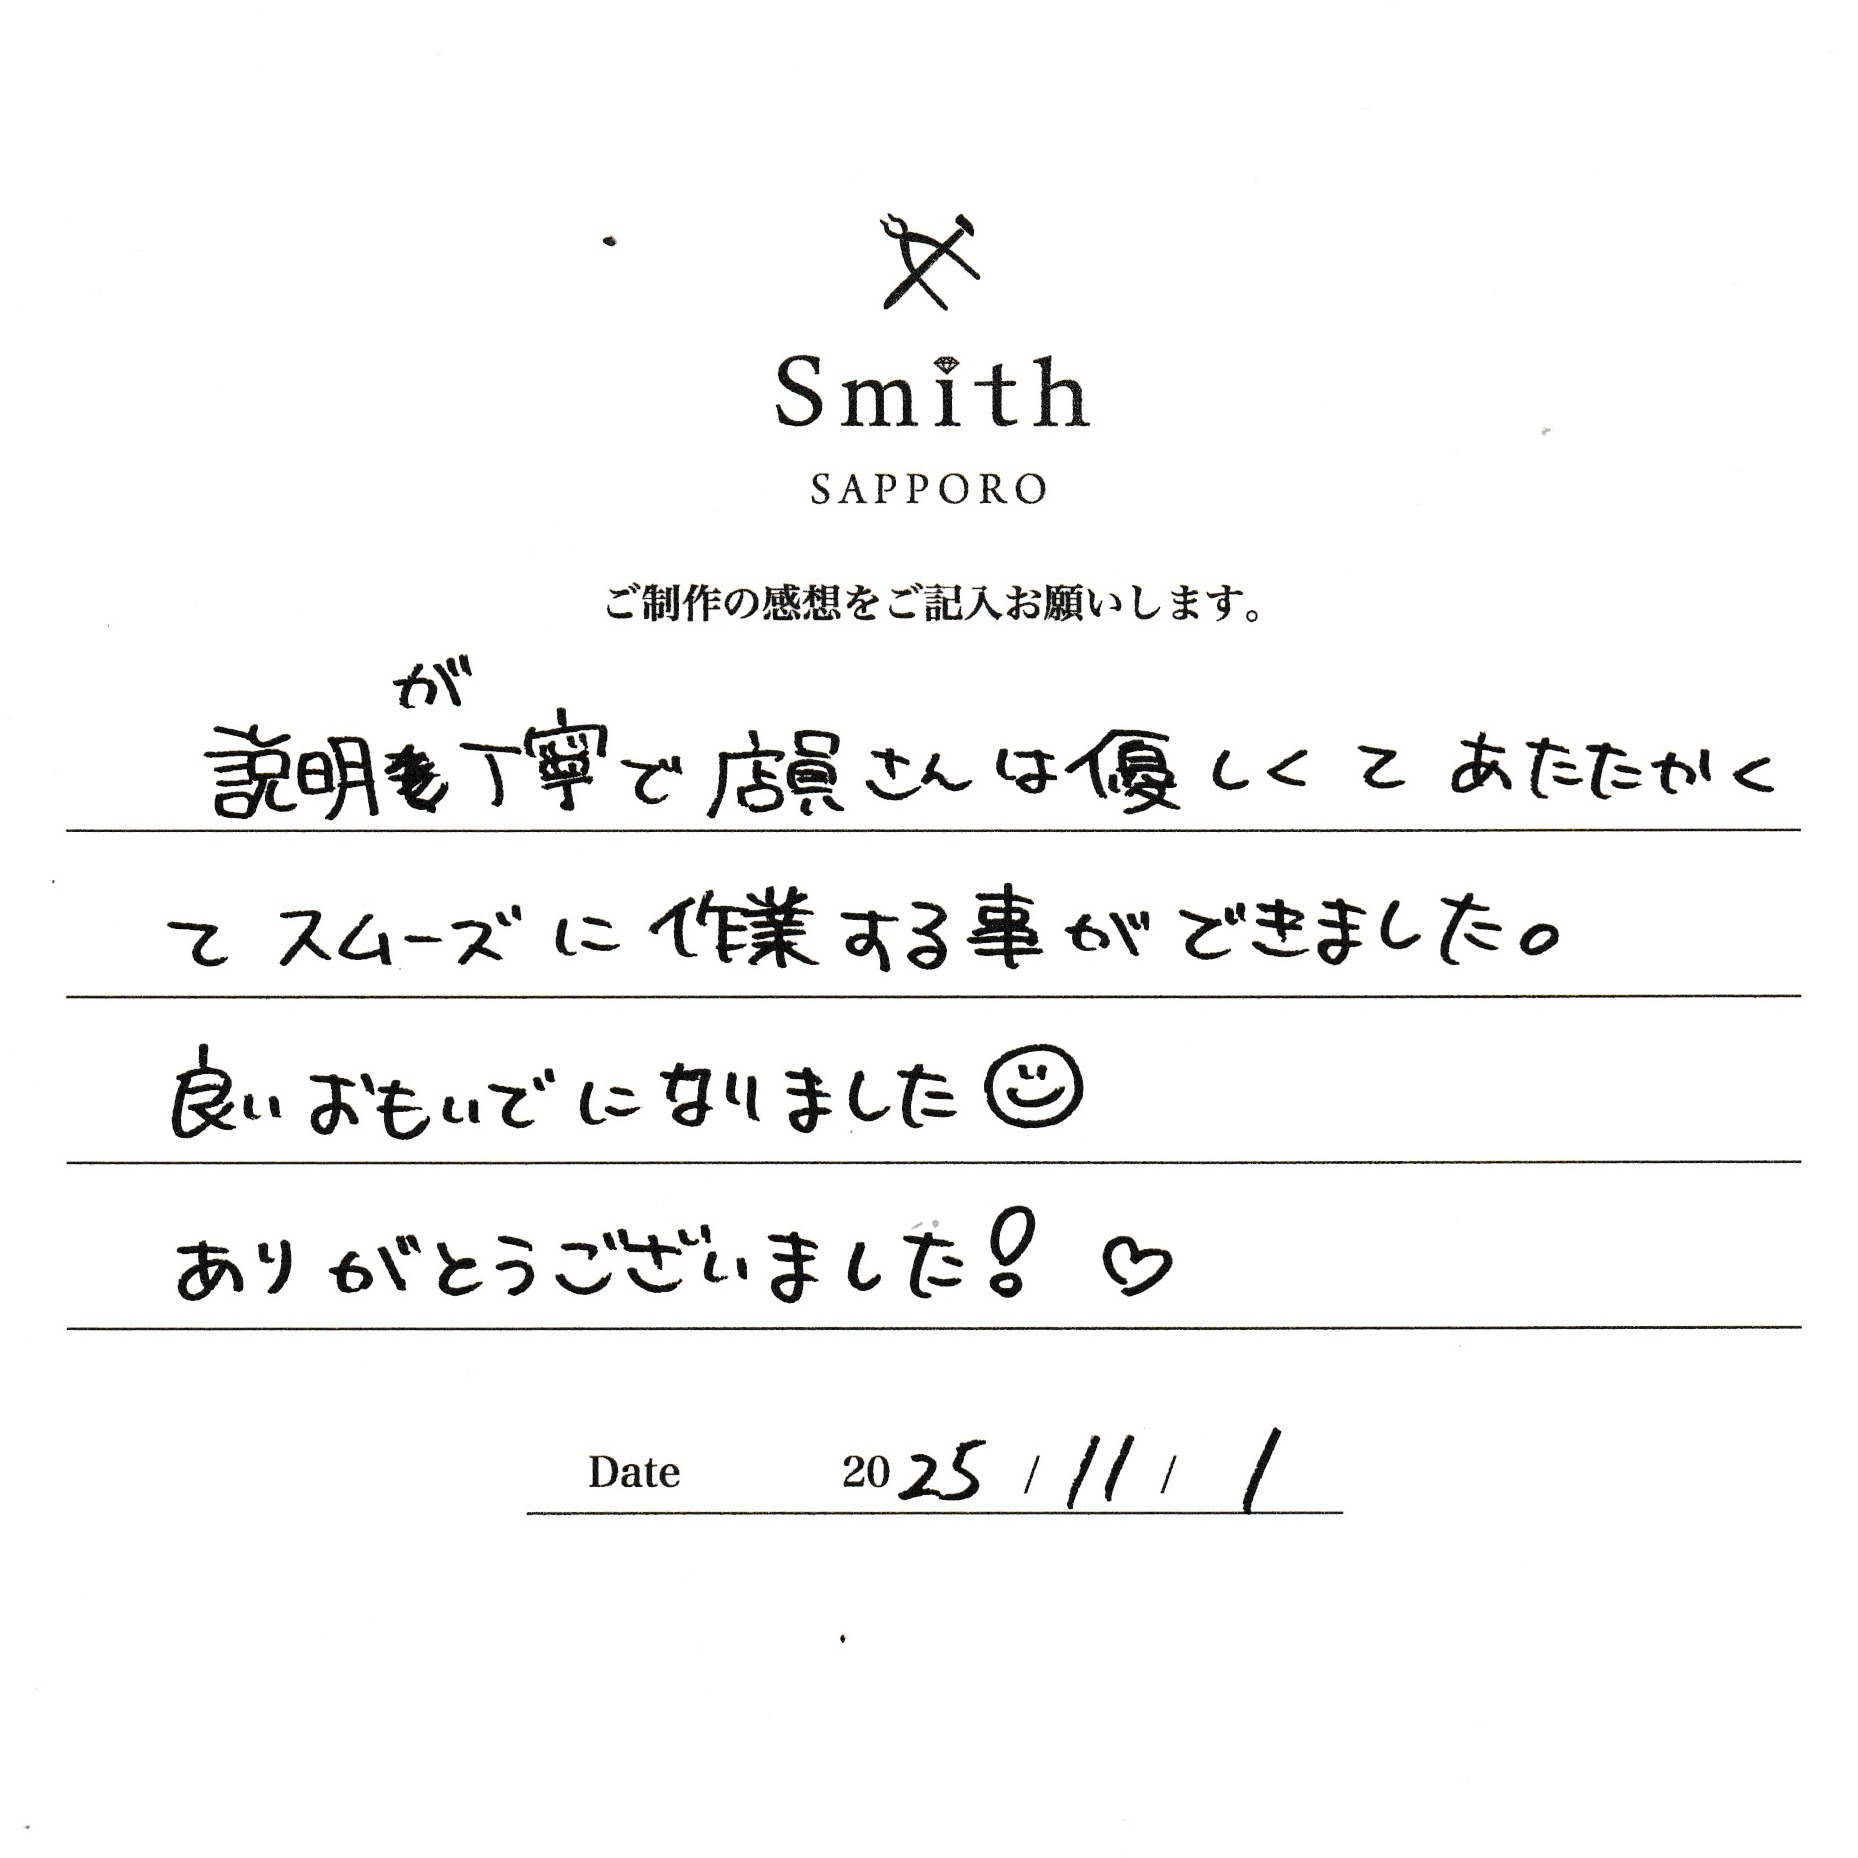 Smith
SAPPORO
ご制作の感想をご記入お願いします。
説明が丁寧で店員さんは優しくてあたたかく
てスムーズに作業する事ができました。
良いおもいでになりました
ありがとうございました!♡
Date 2025/11/1